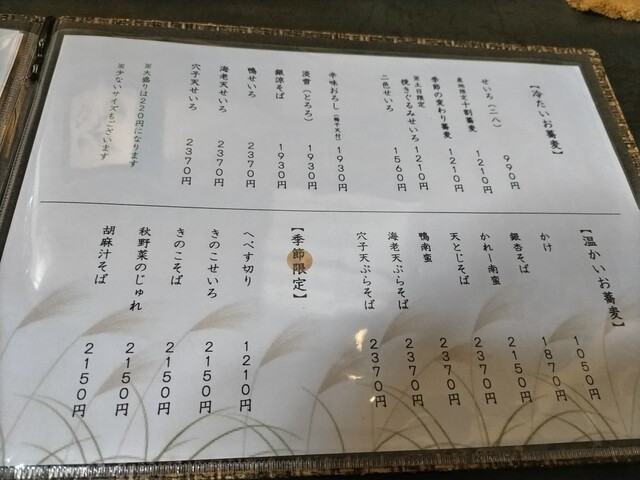 【冷たいお蕎麦】
せいろ（二八） 990円
産地限定十割蕎麦 1210円
季節の変わり蕎麦 1210円
※土日限定
挽きぐるみせいろ 1210円
二色せいろ 1560円
辛味おろし 1930円
淡雪（とろろ） 1930円
銀涼そば 1930円
鴨せいろ 2370円
海老天せいろ 2370円
穴子天せいろ 2370円
※大盛りは220円になります
※少ないサイズもございます
【温かいお蕎麦】
かけ 1050円
銀杏そば 1870円
かれー南蛮 2150円
天とじそば 2370円
鴨南蛮 2370円
海老天ぷらそば 2370円
穴子天ぷらそば 2370円
【季節限定】
へべす切り 1210円
きのこせいろ 2150円
きのこそば 2150円
秋野菜のじゅれ 2150円
胡麻汁そば 2150円